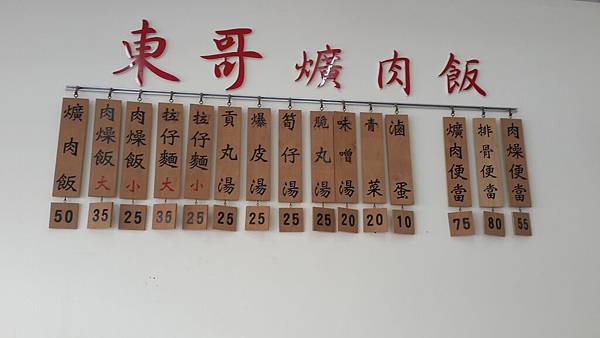 東哥爌肉飯
爌肉飯 50
肉燥飯大 35
肉燥飯小 25
拉仔麵大 35
拉仔麵小 25
貢丸湯 25
爆皮湯 25
筍仔湯 25
脆丸湯 25
味噌湯 20
青菜 20
滷蛋 10
爌肉便當 75
排骨便當 80
肉燥便當 55